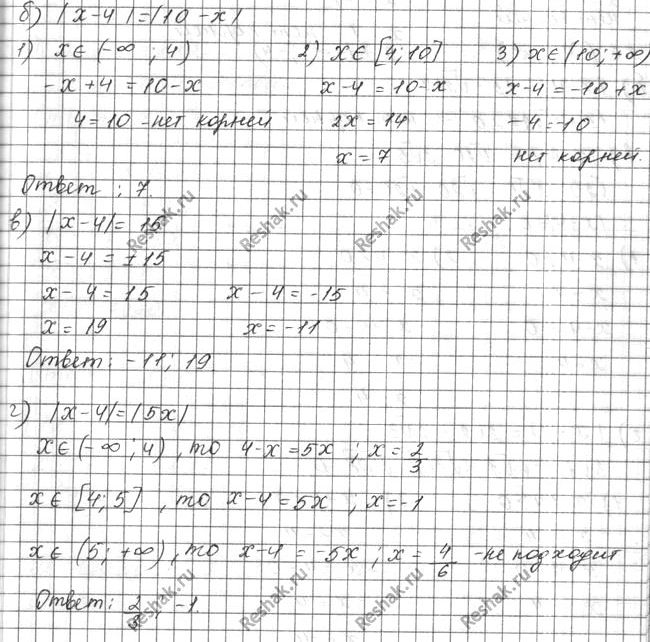 б) |x-4|=|10-x|
1) x∈(-∞ ; 4) 2) x∈[4;10] 3) x∈(10;+∞)
-x+4=10-x x-4=10-x x-4=-10+x
4=10 -нет корней 2x=14 -4=-10
x=7 нет корней.
Ответ: 7.
в) |x-4|=15
x-4=±15
x-4=15 x-4=-15
x=19 x=-11
Ответ: -11; 19.
г) |x-4|=|5x|
x∈(-∞;4), то 4-x=5x ; x=2/3
x∈[4;5], то x-4=5x ; x=-1
x∈(5;+∞), то x-4=-5x ; x=4/6 -не подходит
Ответ: 2/3, -1.
Reshak.ru Reshak.ru Reshak.ru Reshak.ru
Reshak.ru Reshak.ru Reshak.ru Reshak.ru